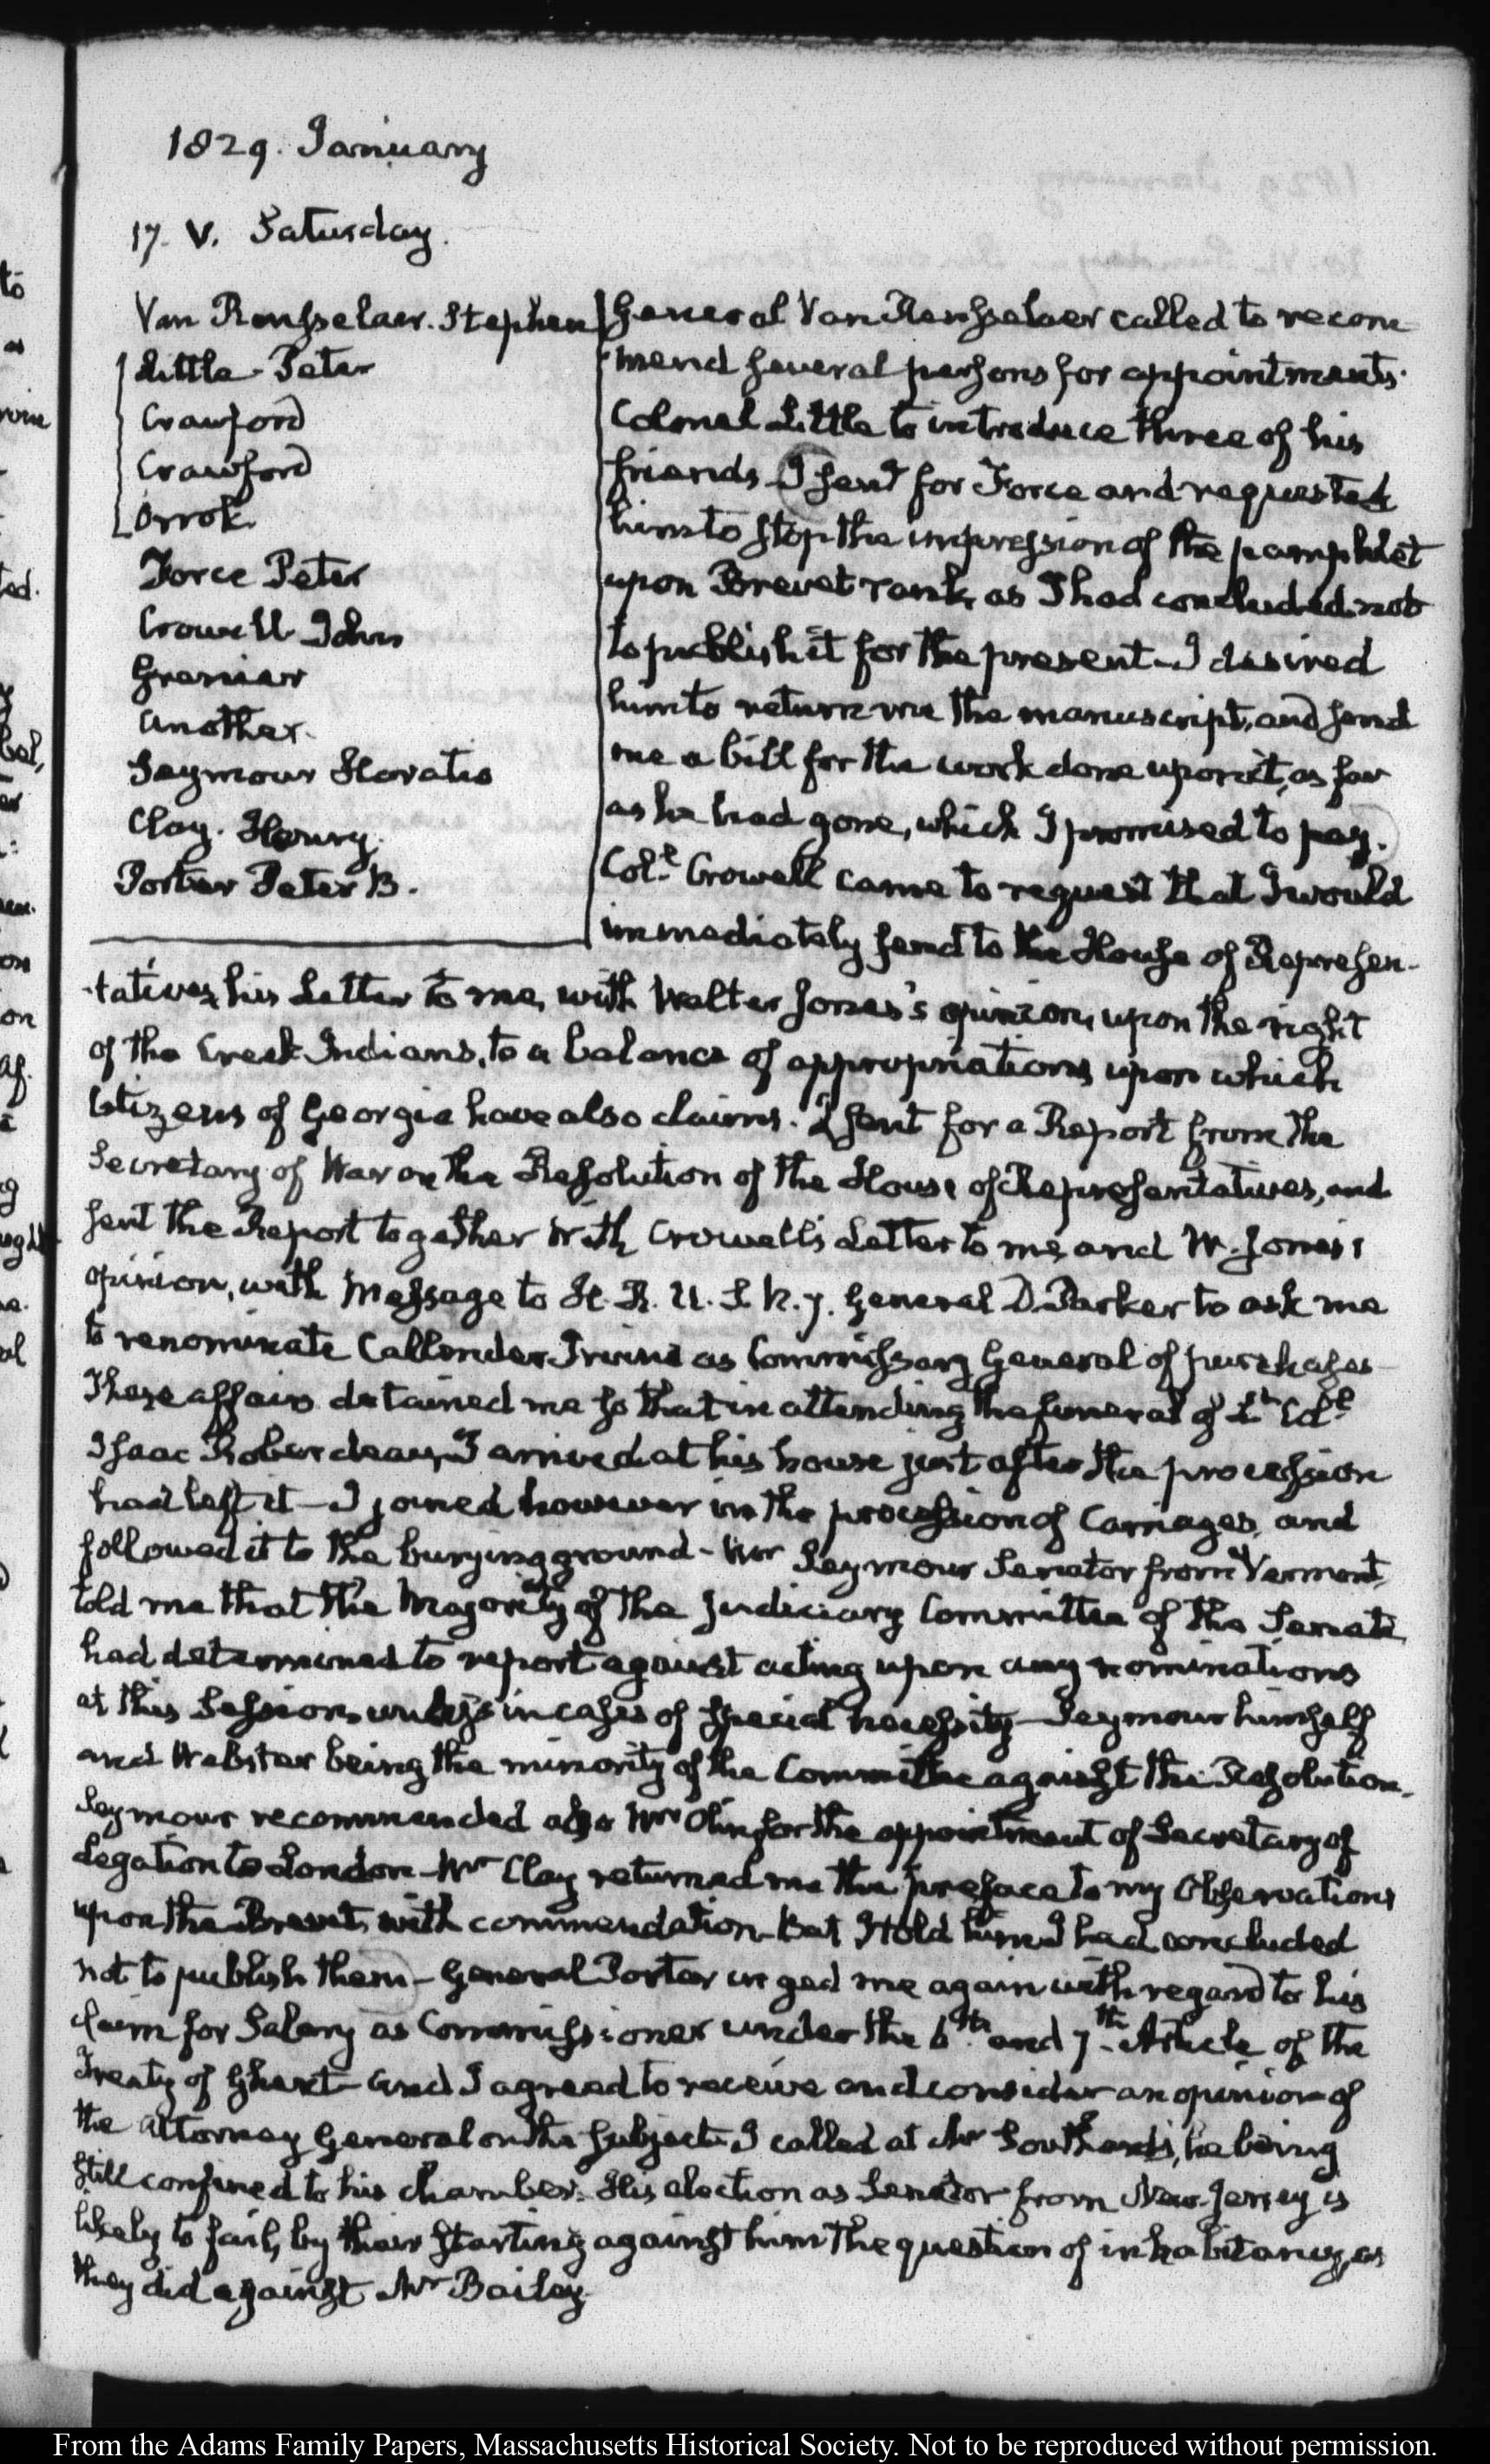 1829. January
17. V. Saturday.
Van Rensselaer. Stephen
Little Peter
Crawford
Crawford
Orrok.
Force Peter
Crowell John
Grenier
Another.
Seymour Horatio
Clay. Henry.
Porter Peter B.
General Van Rensselaer called to recom
mend several persons for appointments.
Colonel Little to introduce three of his
friends I sent for Force and requested
him to stop the impression of the pamphlet
upon Brevet rank, as I had concluded not
to publish it for the present_ I desired
him to return me the manuscript, and send
me a bill for the work done upon it, as far
as he had gone, which I promised to pay.
Coll. Crowell came to request that I would
immediately send to the House of Represen-
-tatives, his Letter to me, with Walter Jones's opinion, upon the right
of the Creek Indians, to a balance of appropriations upon which
Citizens of Georgia have also claims. I sent for a Report from the
Secretary of War on the Resolution of the House of Representatives, and
sent the Report together with Crowell's Letter to me, and W. Jones's
opinion, with Message to H. R. U. S. N. 7. General D Parker to ask me
to renominate Callender Irvine as Commissary General of purchases
These affairs detained me so that in attending the funeral of Lt. Coll
Isaac Roberdeau, I arrived at his house just after the procession
had left it_ I joined however in the procession of Carriages, and
followed it to the burying ground_ Mr Seymour Senator from Vermont,
told me that the Majority of the Judiciary Committee of the Senate,
had determined to report against acting upon any nominations
at this Session, unless in cases of special necessity_ Seymour himself
and Webster being the minority of the Committee against this Resolution.
Seymour recommended also Mr Olin for the appointment of Secretary of
Legation to London_ Mr Clay returned me the preface to my Observations
upon the Brevets, with commendation_ But I told him I had concluded
not to publish them_ General Porter urged me again with regard to his
claim for Salary as Commissioner under the 6th. and 7th. Article of the
Treaty of Ghent_ And I agreed to receive and consider an opinion of
the Attorney General on the subject. I called at Mr Southard's, he being
still confined to his chamber. His election as Senator from New-Jersey is
likely to fail, by their starting against him the question of inhabitancy, as
they did against Mr Bailey.
From the Adams Family Papers, Massachusetts Historical Society. Not to be reproduced without permission.